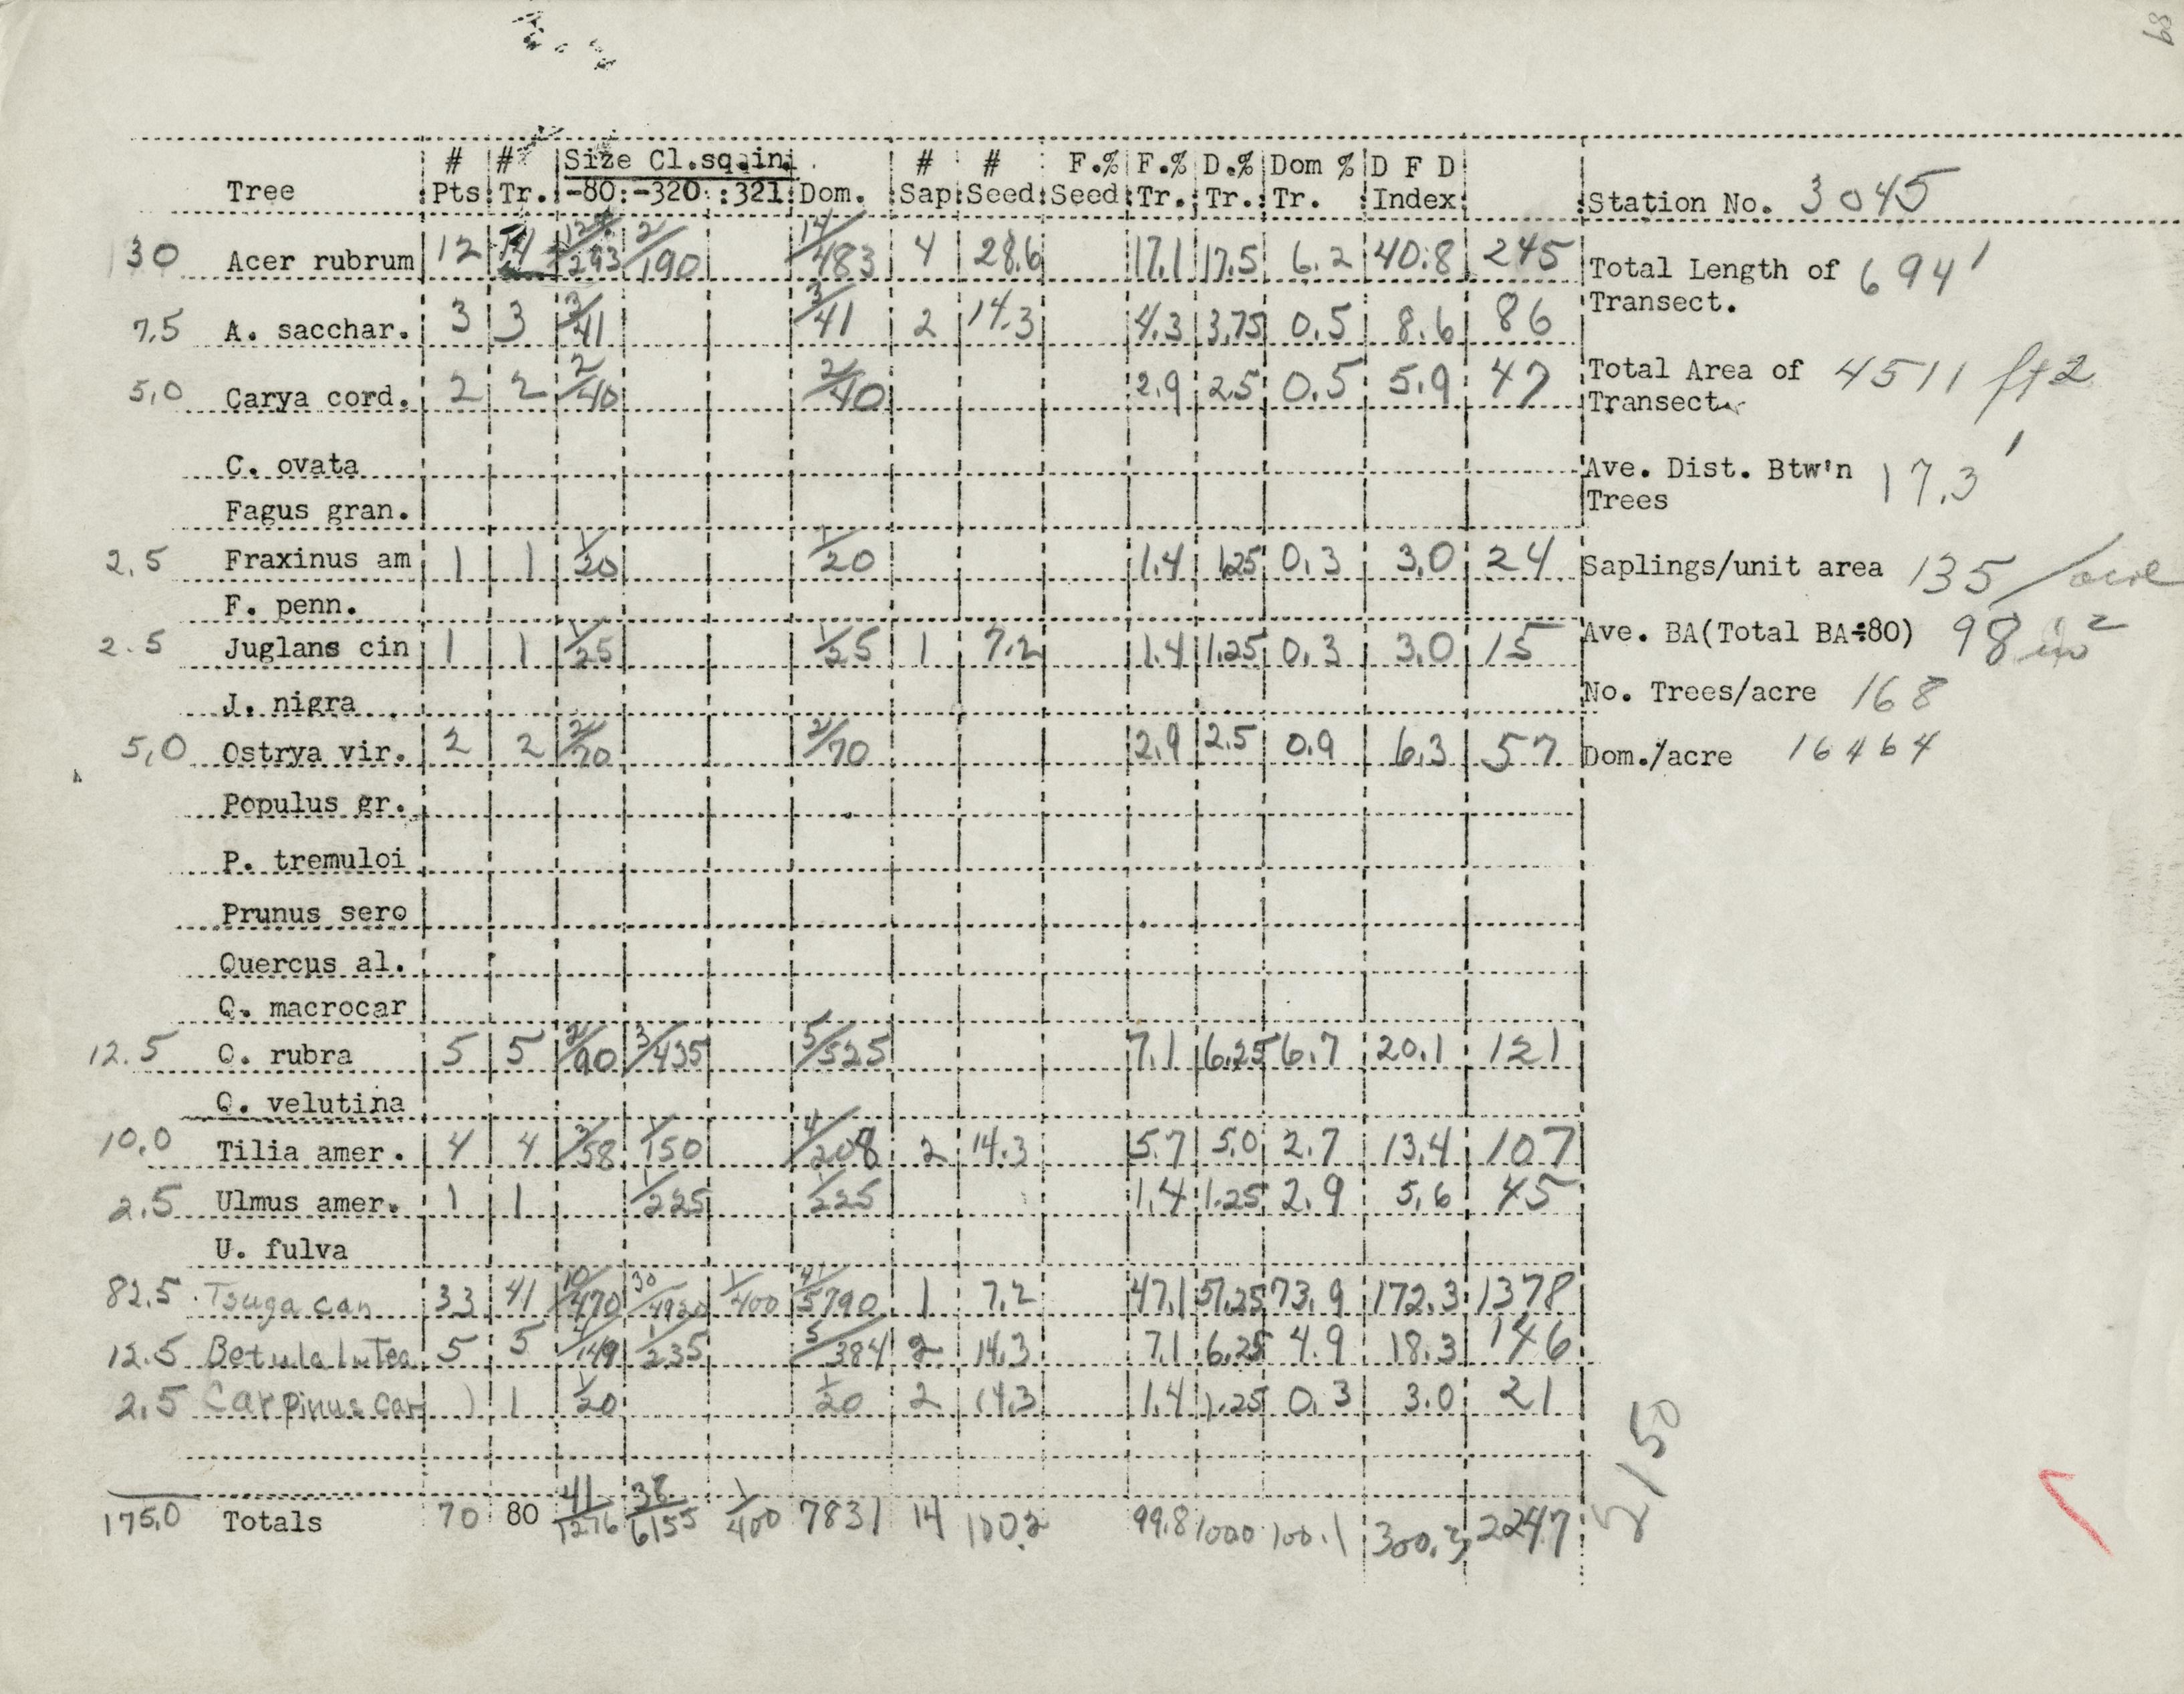 89
# # Size Cl.sq.in. # # F.% F.% D.% Dom % D F D
Tree Pts Tr. -80 -320 321 Dom. Sap Seed Seed Tr. Tr. Tr. Index Station No. 3045
30 Acer rubrum 12 14 12/293 2/190 14/483 4 28.6 17.1 17.5 6.2 40.8 245 Total Length of 694'
Transect.
7.5 A. sacchar. 3 3 3/41 3/41 2 14.3 4.3 3.75 0.5 8.6 86
5.0 Carya cord. 2 2 2/40 2/40 2.9 2.5 0.5 5.9 47 Total Area of 4511 ft2
Transect
C. ovata
Ave. Dist. Btw'n 17.3'
Trees
Fagus gran.
2.5 Fraxinus am 1 1 1/20 1/20 1.4 1.25 0.3 3.0 24 Saplings/unit area 135/acre
F. penn.
2.5 Juglans cin 1 1 1/25 1/25 1 7.2 1.4 1.25 0.3 3.0 15 Ave. BA(Total BA÷80) 98 in2
J. nigra No. Trees/acre 168
5.0 Ostrya vir. 2 2 2/70 2/70 2.9 2.5 0.9 6.3 57 Dom./acre 16464
Populus gr.
P. tremuloi
Prunus sero
Quercus al.
Q. macrocar
12.5 Q. rubra 5 5 2/90 3/435 5/525 7.1 6.25 6.7 20.1 121
Q. velutina
10.0 Tilia amer. 4 4 3/58 1/150 4/208 2 14.3 5.7 5.0 2.7 13.4 107
2.5 Ulmus amer. 1 1 1/225 1/225 1.4 1.25 2.9 5.6 45
U. fulva
82.5 Tsuga can 33 41 10/470 30/4920 1/400 41/5790 1 7.2 47.1 51.25 73.9 172.3 1378
12.5 Betula lutea 5 5 4/149 1/235 5/384 2 14.3 7.1 6.25 4.9 18.3 146
2.5 Carpinus Car 1 1 1/20 1/20 2 14.3 1.4 1.25 0.3 3.0 21
175.0 Totals 70 80 41/1276 38/6155 1/400 7831 14 100.2 99.8 100.0 100.1 300.3 2247
2150